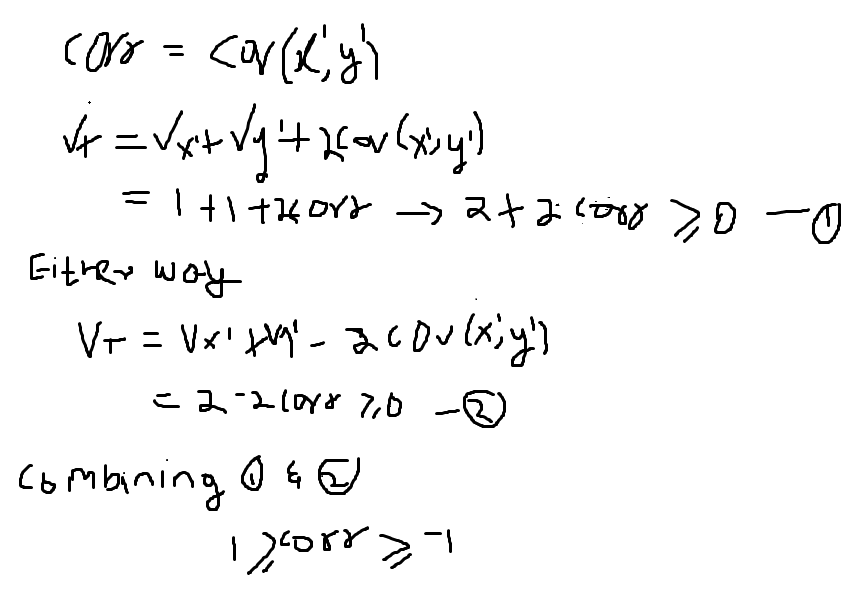 corr = cov(x', y')
V_T = V_x' + V_y' + 2cov(x', y')
= 1 + 1 + 2corr → 2 + 2 corr ⩾ 0 — ①
Either way
V_T = V_x' + V_y' - 2cov(x', y')
= 2 - 2corr ⩾ 0 - ②
Combining ① & ②
1 ⩾ corr ⩾ -1